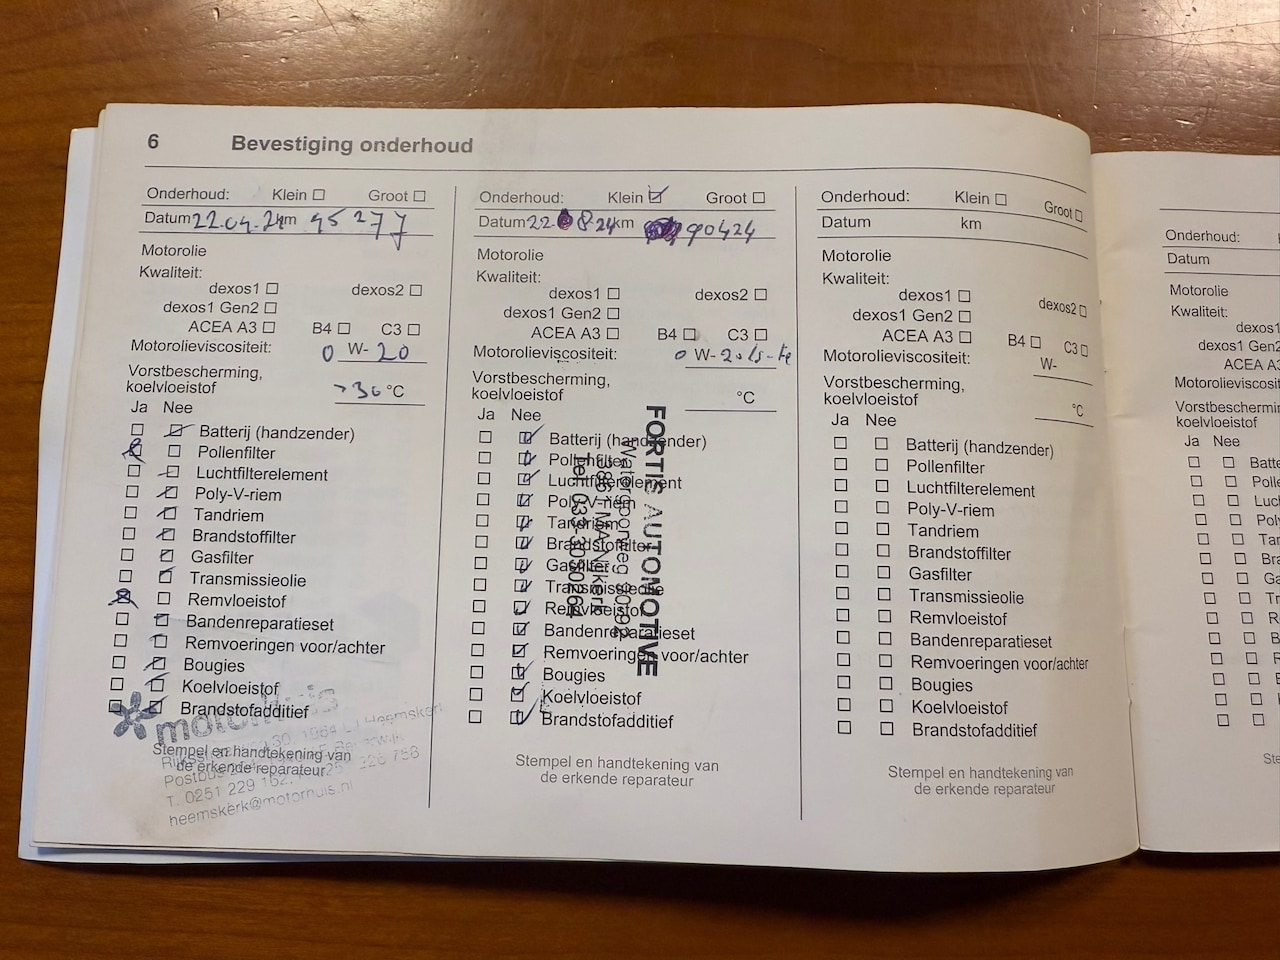 6 Bevestiging onderhoud
Onderhoud: Klein ☐ Groot ☐
Datum 22.04.24 km 45 277
Motorolie
Kwaliteit:
dexos1 ☐ dexos2 ☐
dexos1 Gen2 ☐
ACEA A3 ☐ B4 ☐ C3 ☐
Motorolieviscositeit: 0 W- 20
Vorstbescherming,
koelvloeistof >36 °C
Ja Nee
Batterij (handzender)
Pollenfilter
Luchtfilterelement
Poly-V-riem
Tandriem
Brandstoffilter
Gasfilter
Transmissieolie
Remvloeistof
Bandenreparatieset
Remvoeringen voor/achter
Bougies
Koelvloeistof
Brandstofadditief
motorhuis
Stempel en handtekening van
de erkende reparateur
T. 0251 229 162
heemskerk@motorhuis.nl
Onderhoud: Klein ☑ Groot ☐
Datum 22. 8 24 km 90424
Motorolie
Kwaliteit:
dexos1 ☐ dexos2 ☐
dexos1 Gen2 ☐
ACEA A3 ☐ B4 ☐ C3 ☐
Motorolieviscositeit: 0 W- 20
Vorstbescherming,
koelvloeistof °C
Ja Nee
Batterij (handzender)
Pollenfilter
Luchtfilterelement
Poly-V-riem
Tandriem
Brandstoffilter
Gasfilter
Transmissieolie
Remvloeistof
Bandenreparatieset
Remvoeringen voor/achter
Bougies
Koelvloeistof
Brandstofadditief
FORTIS AUTOMOTIVE
Nijkerk
Tel. 033-3030264
Stempel en handtekening van
de erkende reparateur
Onderhoud: Klein ☐ Groot ☐
Datum km
Motorolie
Kwaliteit:
dexos1 ☐ dexos2 ☐
dexos1 Gen2 ☐
ACEA A3 ☐ B4 ☐ C3 ☐
Motorolieviscositeit: W-
Vorstbescherming,
koelvloeistof °C
Ja Nee
☐ ☐ Batterij (handzender)
☐ ☐ Pollenfilter
☐ ☐ Luchtfilterelement
☐ ☐ Poly-V-riem
☐ ☐ Tandriem
☐ ☐ Brandstoffilter
☐ ☐ Gasfilter
☐ ☐ Transmissieolie
☐ ☐ Remvloeistof
☐ ☐ Bandenreparatieset
☐ ☐ Remvoeringen voor/achter
☐ ☐ Bougies
☐ ☐ Koelvloeistof
☐ ☐ Brandstofadditief
Stempel en handtekening van
de erkende reparateur
Onderhoud:
Datum
Motorolie
Kwaliteit:
dexos1
dexos1 Gen2
ACEA A3
Motorolieviscosit
Vorstbeschermin
koelvloeistof
Ja Nee